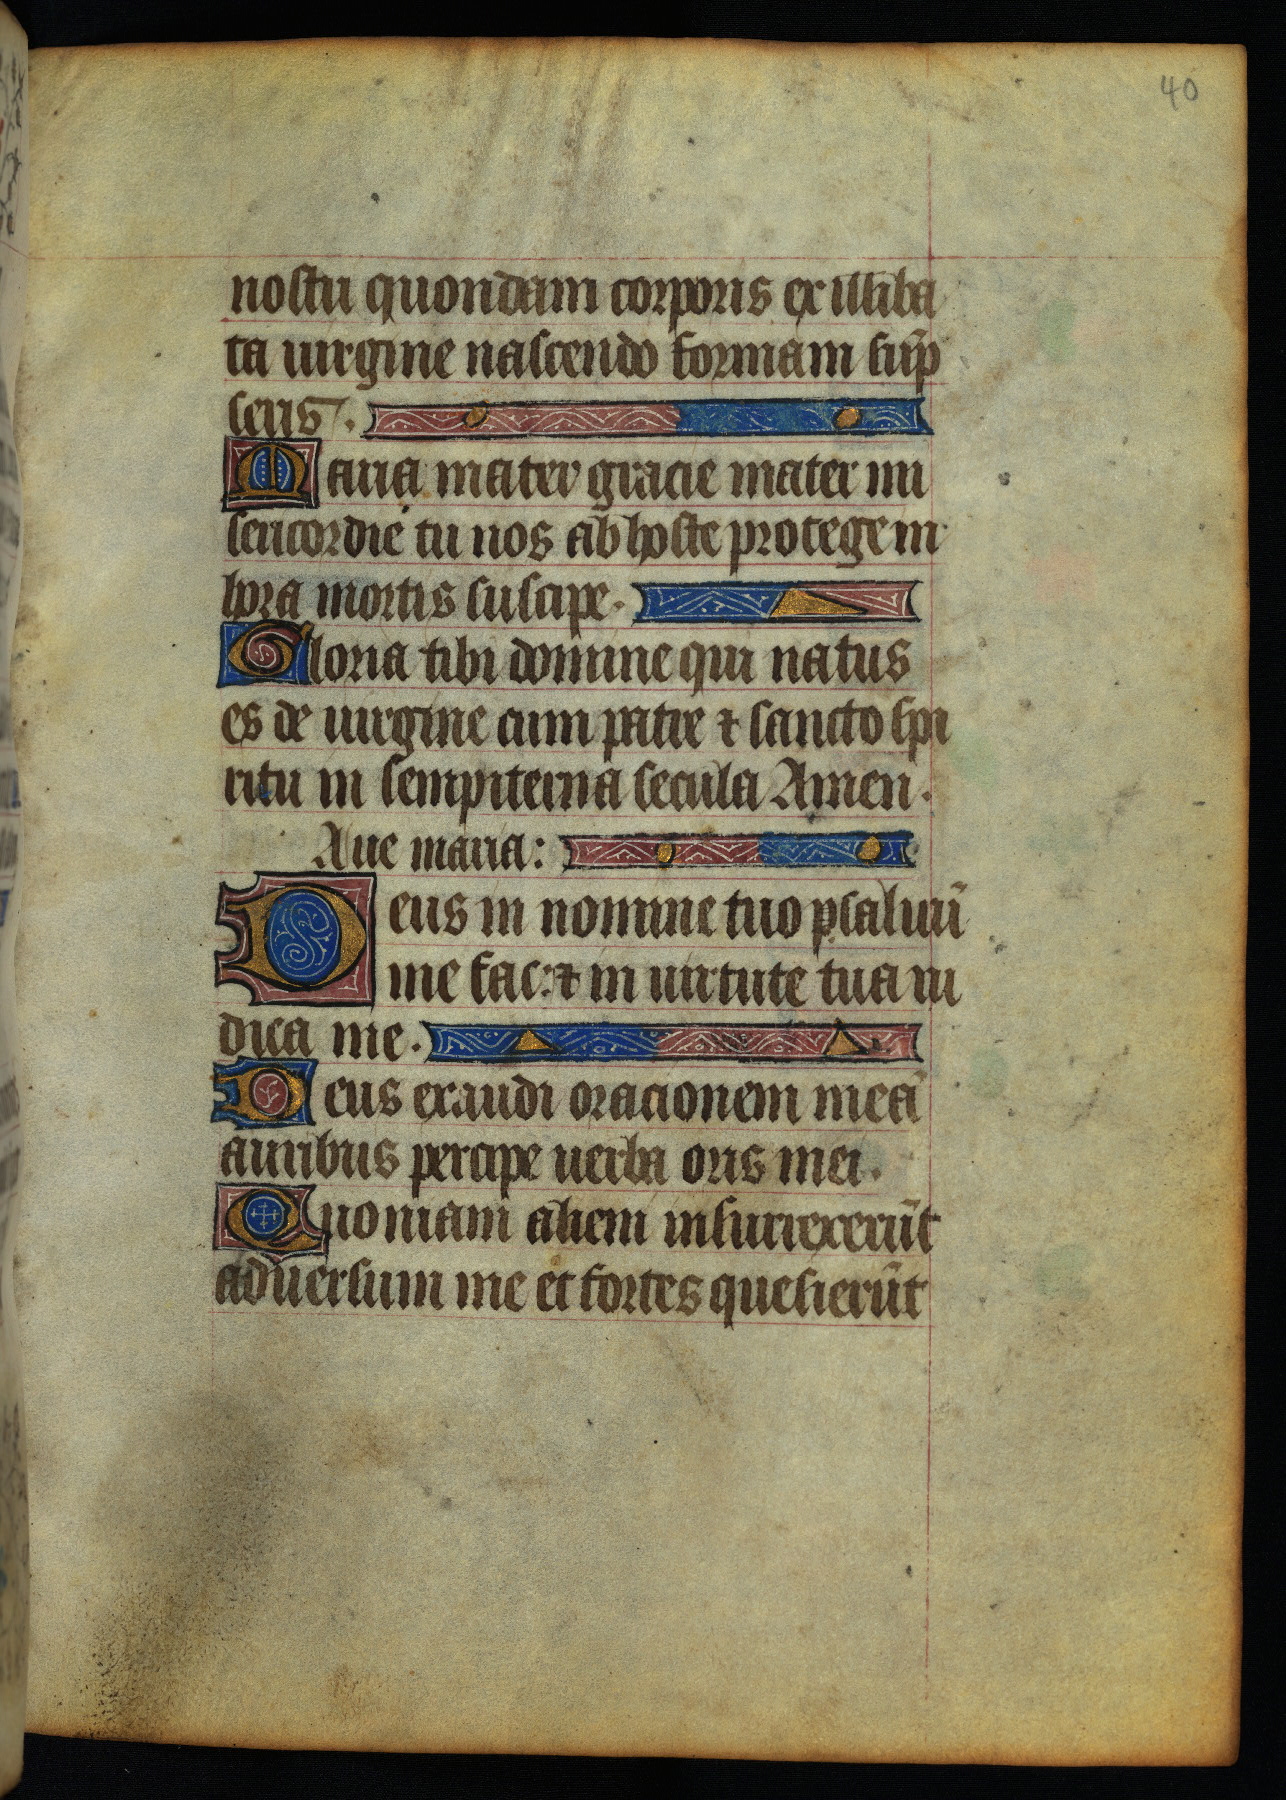 40
nostri quondam corporis ex illiba
ta uirgine nascendo formam sūp
seris.
Maria mater gracie mater mi
sericordie tu nos ab hoste protege in
hora mortis suscipe.
Gloria tibi domine qui natus
es de uirgine cum patre ⁊ sancto spi
ritu in sempiterna secula Amen.
Aue maria:
Deus in nomine tuo psaluū
me fac: ⁊ in uirtute tua iu
dica me.
Deus exaudi oracionem meā
auribus percipe uerba oris mei.
Quoniam alieni insurrexerūt
aduersum me et fortes quesierūt